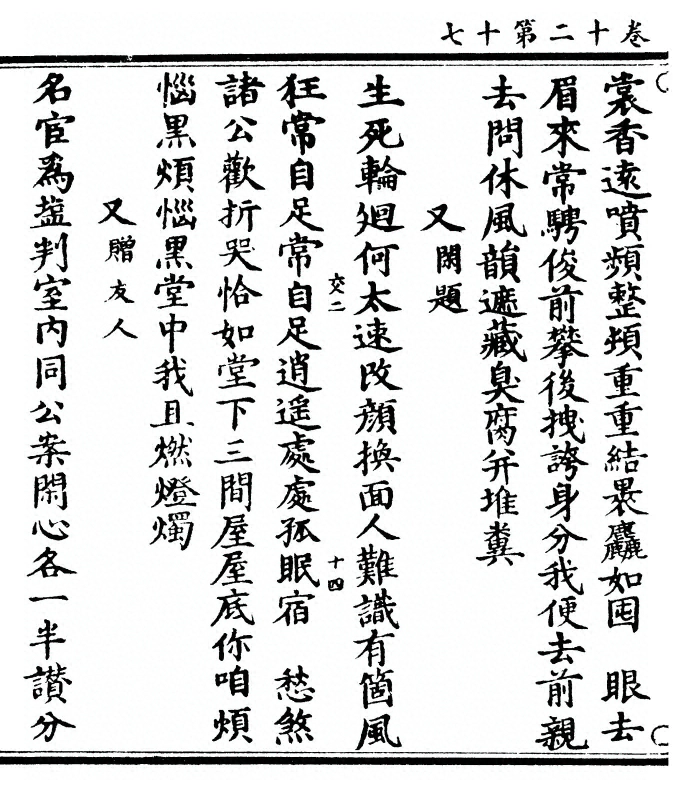 卷十二第十七
裳香遠噴頻整頻重重結褁麤如囤　眼去
眉來常騁俊前攀後拽誇身分我便去前親
去問休風韻遮藏臭腐并堆糞
又閑題
生死輪廻何太速改顏換面人難識有箇風
交二　十四
狂常自足常自足逍遥處處孤眠宿　愁煞
諸公歡折哭恰如堂下三間屋屋底你咱煩
惱黑煩惱黑堂中我且燃燈燭
又贈友人
名官為塩判室内同公案閑心各一半讃分